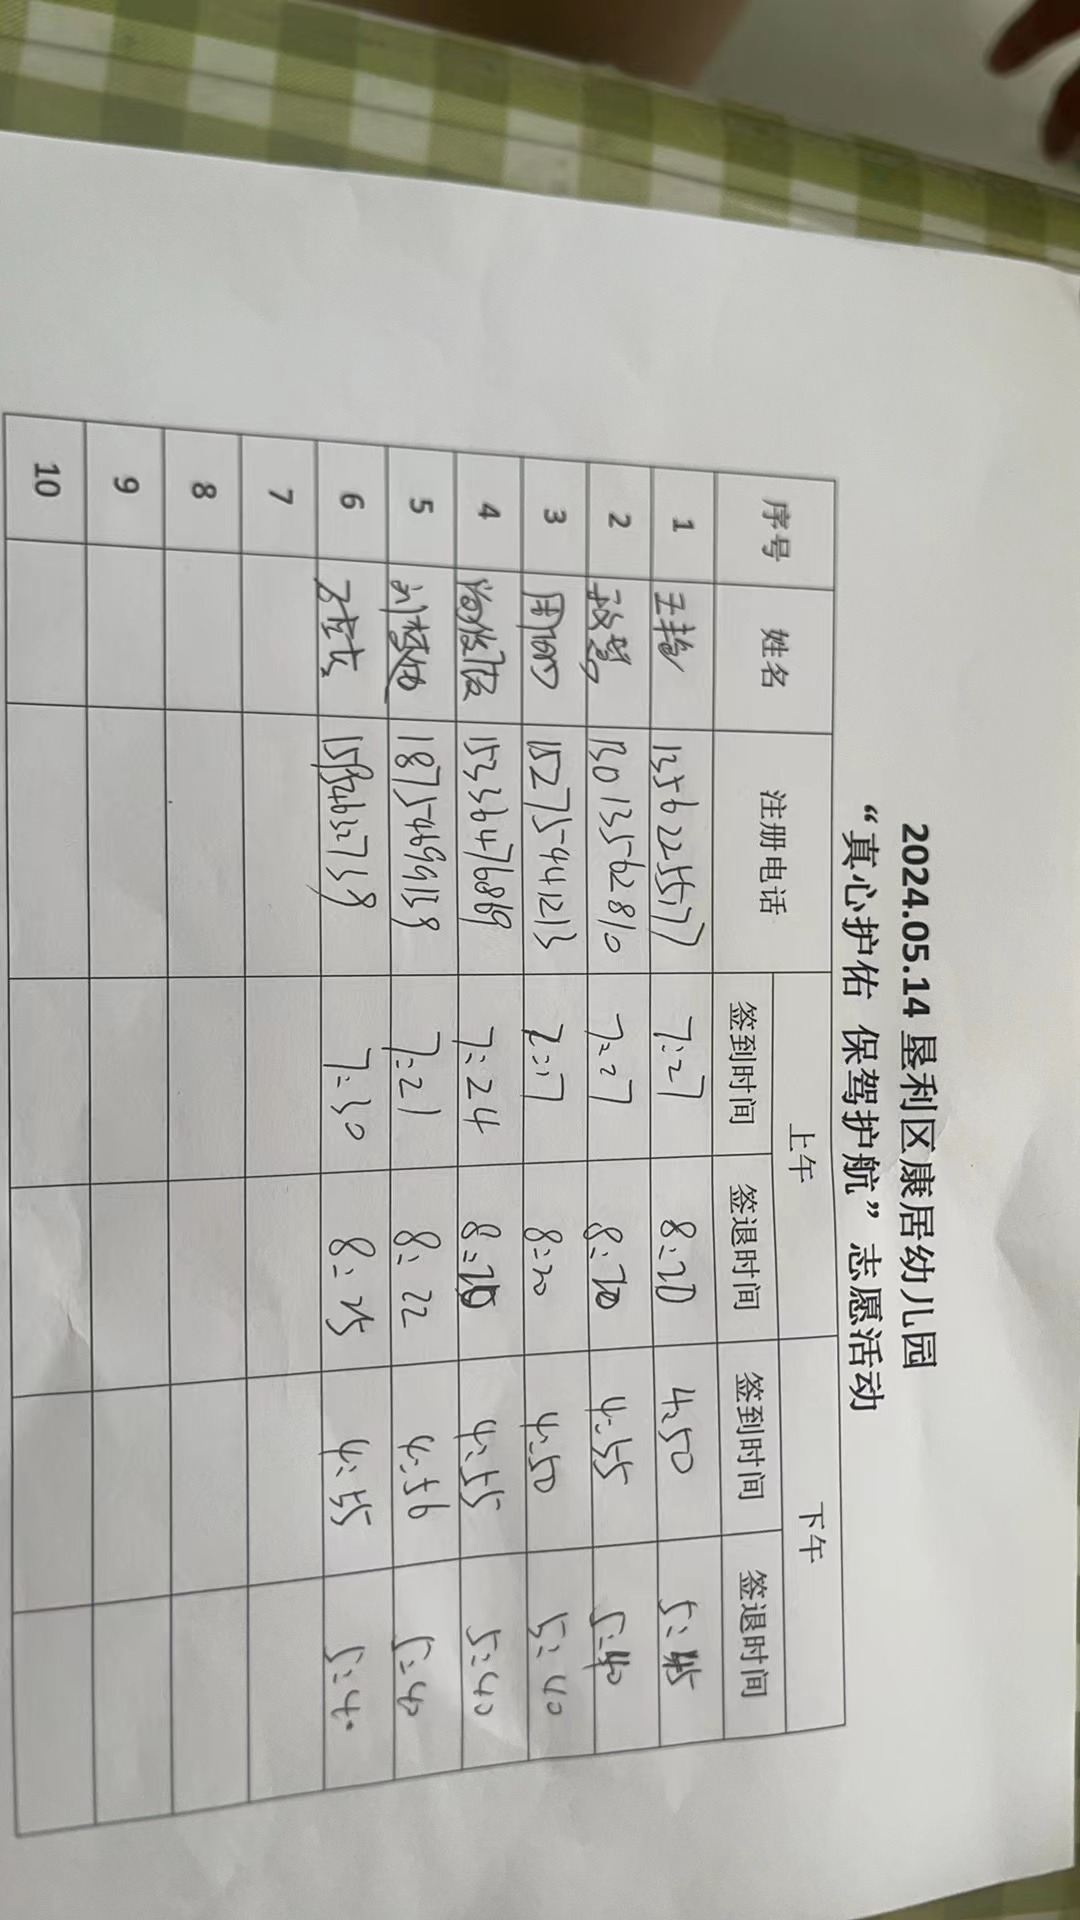 2024.05.14 垦利区康居幼儿园
“真心护佑 保驾护航”志愿活动
序号 姓名 注册电话 上午 下午
签到时间 签退时间 签到时间 签退时间
1 王艳 13562255177 7:27 8:20 4:50 5:45
2 13013562810 7:27 8:20 4:55 5:40
3 15275441213 7:17 8:20 4:50 5:40
4 15336476869 7:24 8:20 4:55 5:40
5 18754699139 7:21 8:22 4:56 5:40
6 7:30 8:25 4:55 5:40
7
8
9
10